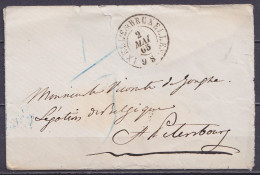 IXELLES-BRUXELLES
2
MAI
65
9 S
Monsieur le Vicomte de Jonghe
Légation de Belgique
St Petersbourg